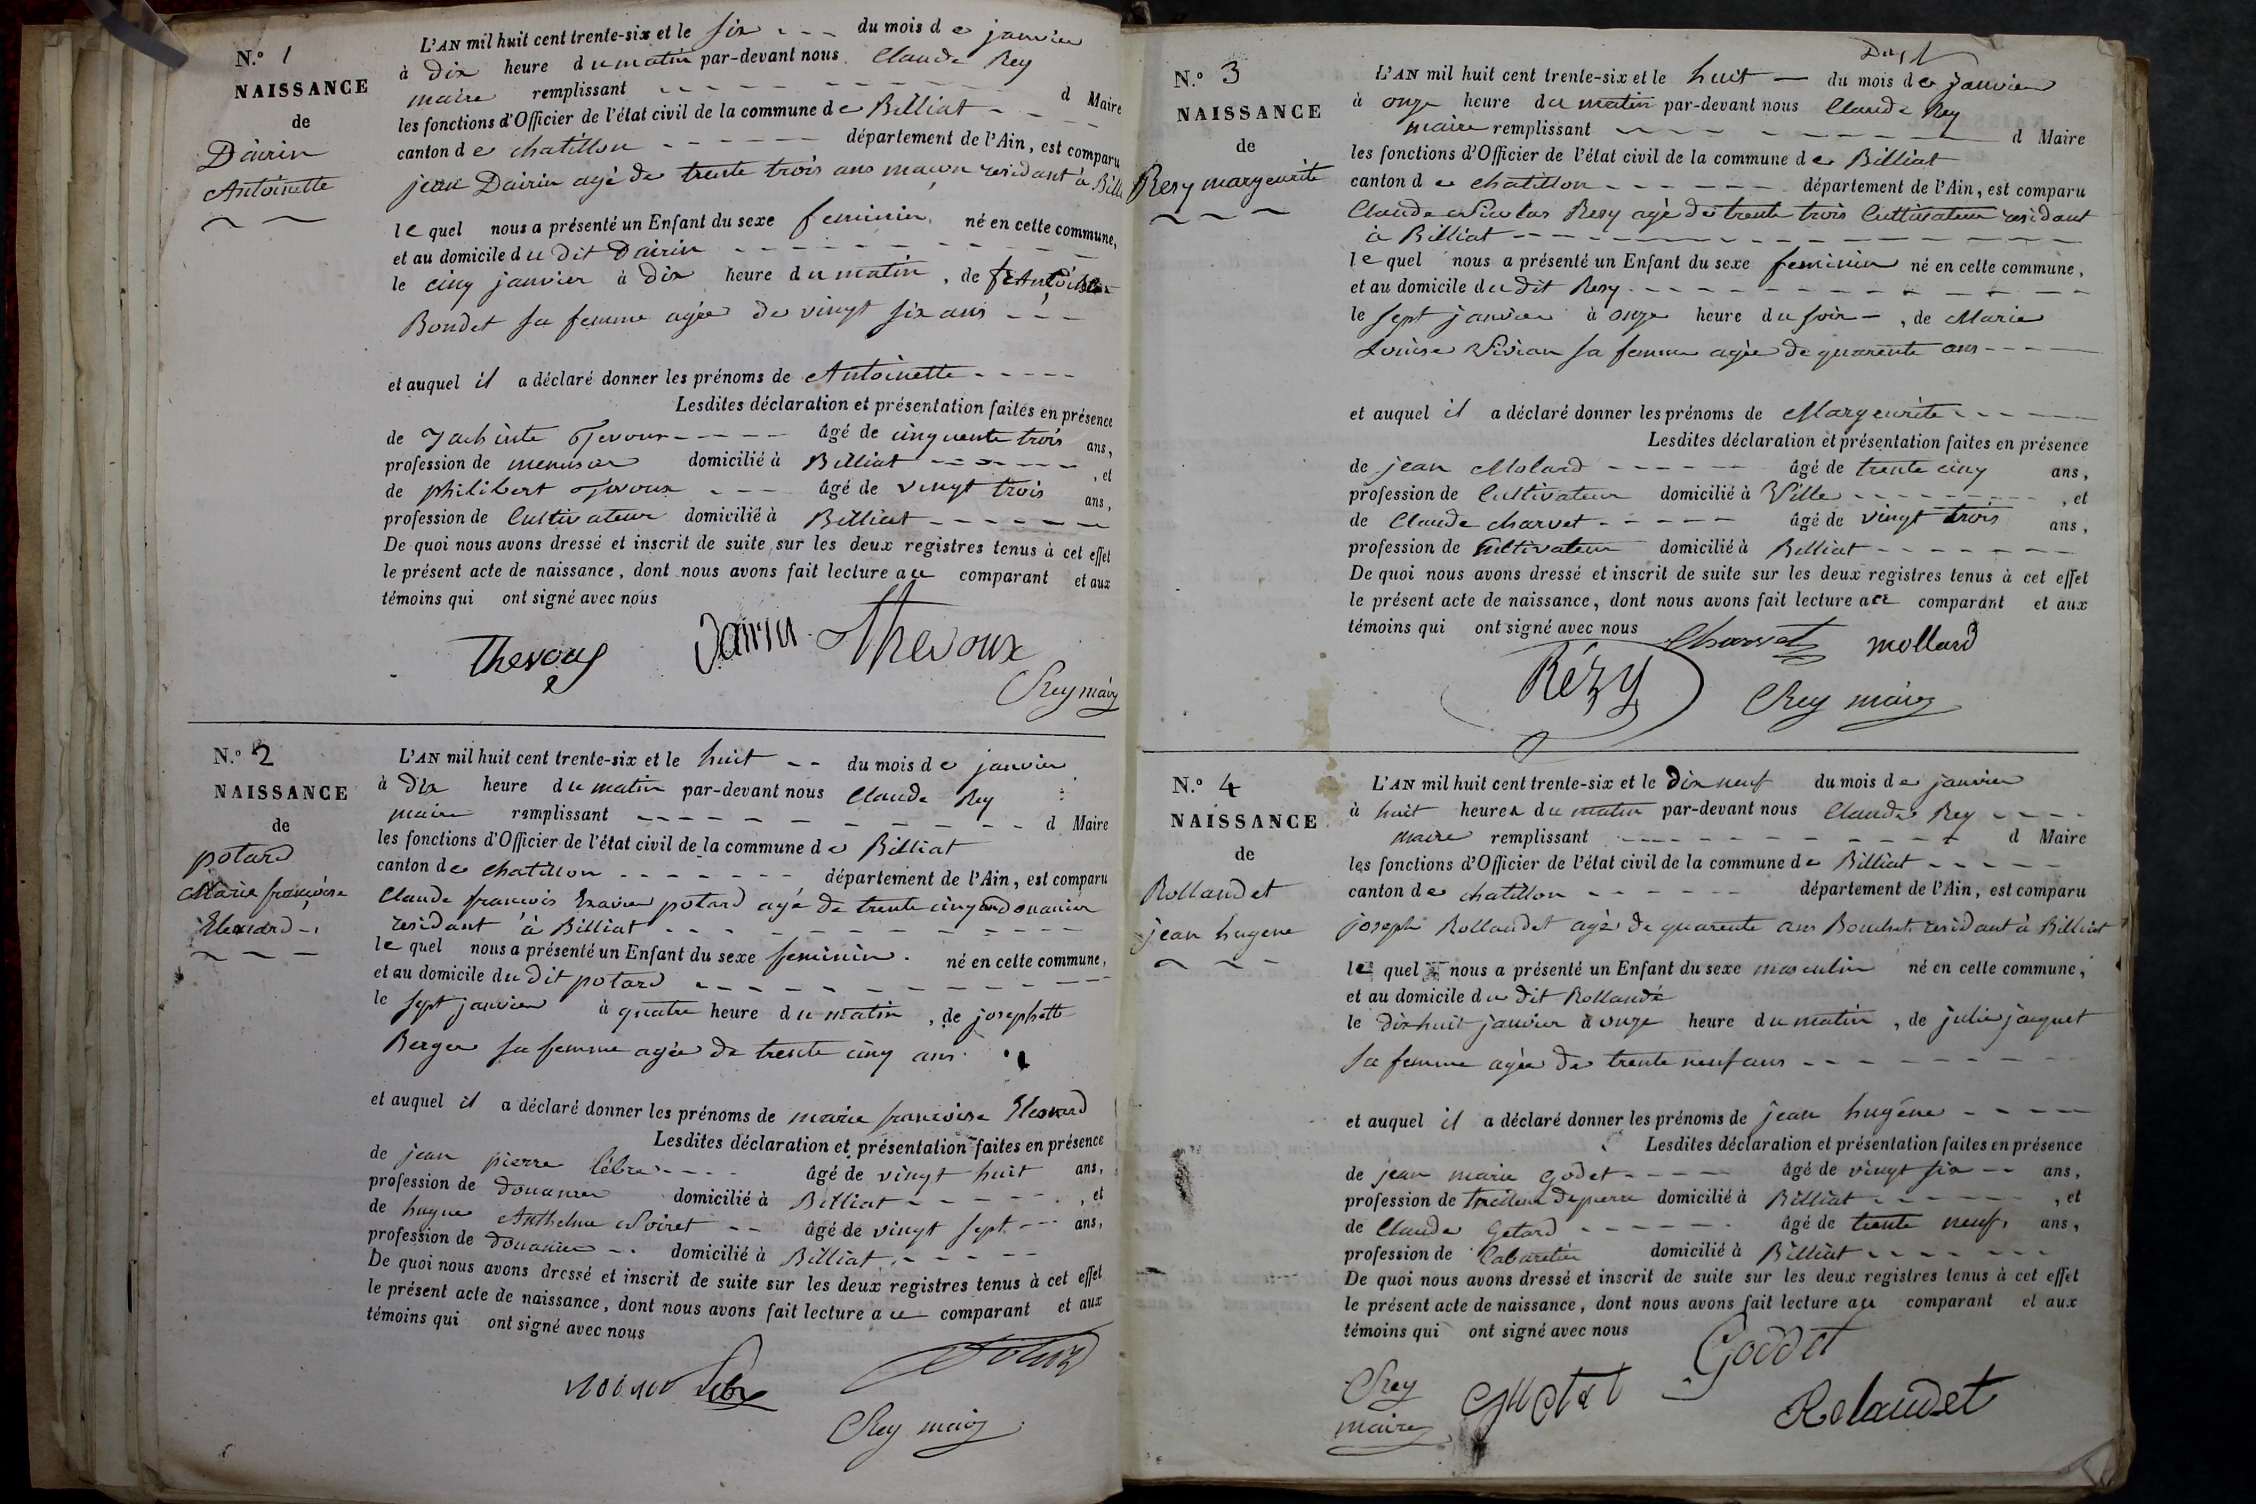 N.o 1
NAISSANCE
de
Dairin
Antoinette
L'AN mil huit cent trente-six et le six du mois de janvier
à dix heure du matin par-devant nous Claude Rey
maire remplissant d Maire
les fonctions d'Officier de l'état civil de la commune de Billiat
canton de chatillon département de l'Ain, est comparu
jean Dairin agé de trente trois ans maçon residant à Billi
le quel nous a présenté un Enfant du sexe feminin né en cette commune,
et au domicile du dit Dairin
le cinq janvier à dix heure du matin, de
Bondet sa femme agée de vingt six ans
et auquel il a déclaré donner les prénoms de Antoinette
Lesdites déclaration et présentation faites en présence
de Jachinte Tevoux âgé de cinquente trois ans,
profession de menusier domicilié à Billiat, et
de philibert Tevoux âgé de vingt trois ans,
profession de Cultivateur domicilié à Billiat
De quoi nous avons dressé et inscrit de suite sur les deux registres tenus à cet effet
le présent acte de naissance, dont nous avons fait lecture au comparant et aux
témoins qui ont signé avec nous
Thevoux Dairin Thevoux
CRey maire
N.o 2
NAISSANCE
de
potard
Marie françoise
Eleonard
L'AN mil huit cent trente-six et le huit du mois de janvier
à dix heure du matin par-devant nous Claude Rey
maire remplissant d Maire
les fonctions d'Officier de l'état civil de la commune de Billiat
canton de chatillon département de l'Ain, est comparu
Claude francois Exavier potard agé de trente cinq ans douanier
residant à Billiat
le quel nous a présenté un Enfant du sexe feminin né en cette commune,
et au domicile du dit potard
le sept janvier à quatre heure du matin, de josephette
Berger sa femme agée de trente cinq ans
et auquel il a déclaré donner les prénoms de marie francoise Eleonard
Lesdites déclaration et présentation faites en présence
de jean pierre lébre âgé de vingt huit ans,
profession de douanier domicilié à Billiat, et
de hugue Anthelme Noiret âgé de vingt sept ans,
profession de douanier domicilié à Billiat
De quoi nous avons dressé et inscrit de suite sur les deux registres tenus à cet effet
le présent acte de naissance, dont nous avons fait lecture au comparant et aux
témoins qui ont signé avec nous
CRey maire
N.o 3
NAISSANCE
de
Resy margeurite
L'AN mil huit cent trente-six et le huit du mois de janvier
à onze heure du matin par-devant nous Claude Rey
maire remplissant d Maire
les fonctions d'Officier de l'état civil de la commune de Billiat
canton de chatillon département de l'Ain, est comparu
Claude Nicolas Resy agé de trente trois Cultivateur residant
à Billiat
le quel nous a présenté un Enfant du sexe feminin né en cette commune,
et au domicile du dit Resy
le sept janvier à onze heure du soir, de Marie
Louise Vivian sa femme agée de quarente ans
et auquel il a déclaré donner les prénoms de Margeurite
Lesdites déclaration et présentation faites en présence
de jean Molard âgé de trente cinq ans,
profession de Cultivateur domicilié à Ville, et
de Claude charvet âgé de vingt trois ans,
profession de Cultivateur domicilié à Billiat
De quoi nous avons dressé et inscrit de suite sur les deux registres tenus à cet effet
le présent acte de naissance, dont nous avons fait lecture au comparant et aux
témoins qui ont signé avec nous
Charvet mollard
Rézy CRey maire
N.o 4
NAISSANCE
de
Rollandet
jean hugene
L'AN mil huit cent trente-six et le dix neuf du mois de janvier
à huit heures du matin par-devant nous Claude Rey
maire remplissant d Maire
les fonctions d'Officier de l'état civil de la commune de Billiat
canton de chatillon département de l'Ain, est comparu
joseph Rollandet agé de quarente ans residant à Billiat
le quel nous a présenté un Enfant du sexe masculin né en cette commune,
et au domicile du dit Rollandé
le dix huit janvier à onze heure du matin, de julie jaquet
sa femme agée de trente neuf ans
et auquel il a déclaré donner les prénoms de jean hugéne
Lesdites déclaration et présentation faites en présence
de jean marie godet âgé de vingt six ans,
profession de tailleur de pierre domicilié à Billiat, et
de Claude Getard âgé de trente neuf ans,
profession de Cabaretier domicilié à Billiat
De quoi nous avons dressé et inscrit de suite sur les deux registres tenus à cet effet
le présent acte de naissance, dont nous avons fait lecture au comparant et aux
témoins qui ont signé avec nous
Goddet
CRey
maire
Rolandet